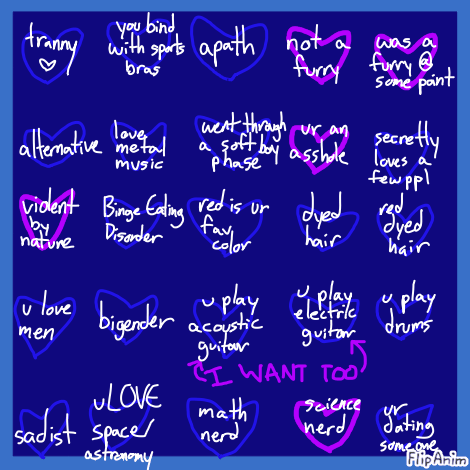 tranny
you bind
with sports
bras
apath
not a
furry
was a
furry @
some point
alternative
love
metal
music
went through
a softboy
phase
ur an
asshole
secretly
loves a
few ppl
violent
by
nature
Binge Eating
Disorder
red is ur
fav
color
dyed
hair
red
dyed
hair
u love
men
bigender
u play
acoustic
guitar
u play
electric
guitar
u play
drums
I WANT TOO
sadist
u LOVE
space/
astronomy
math
nerd
science
nerd
ur
dating
someone
FlipAnim